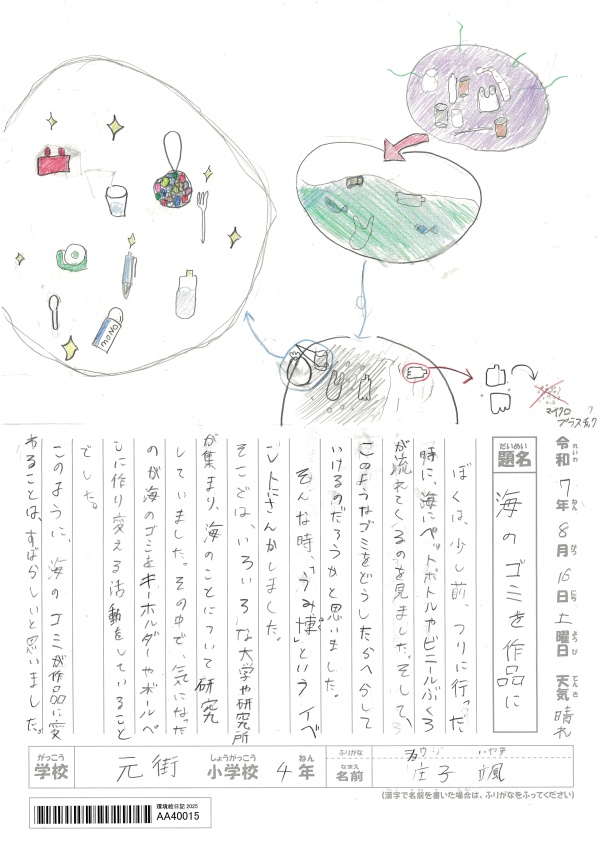 mono
マイクロ
プラスチック
令和 7年 8月 16日 土曜日 天気 晴れ
れいわ ねん がつ にち ようび てんき
だいめい
題名
海のゴミを作品に
ぼくは、少し前、つりに行った
時に、海にペットボトルやビニールぶくろ
が流れてくるのを見ました。そして、
このようなゴミをどうしたらへらして
いけるのだろうかと思いました。
そんな時、「うみ博」というイベ
ントにさんかしました。
そこでは、いろいろな大学や研究所
が集まり、海のことについて研究
していました。その中で、気になった
のが海のゴミをキーホルダーやボールペ
ンに作り変える活動をしていること
でした。
このように、海のゴミが作品に変
わることは、すばらしいと思いました。
がっこう
学校
元街
しょうがっこう
小学校
4
ねん
年
ふりがな
ショウジ ハヤテ
なまえ
名前
庄子 颯
(漢字で名前を書いた場合は、ふりがなをふってください)
環境絵日記 2025
AA40015